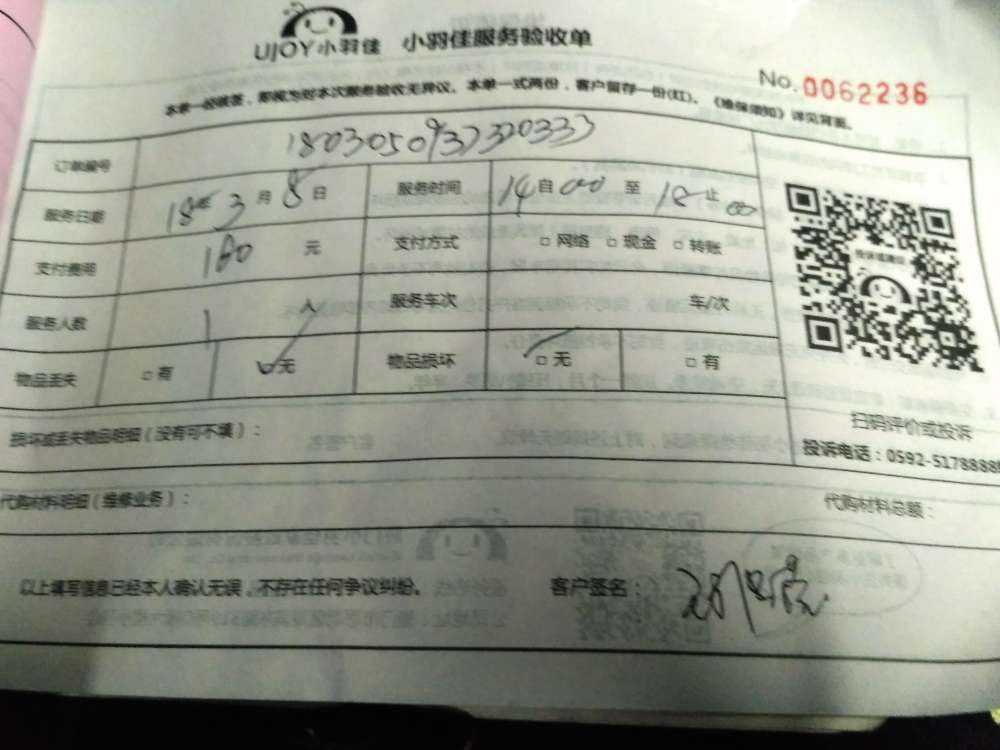 UJOY小羽佳 小羽佳服务验收单
No. 0062236
本单一经核签，即视为对本次服务验收无异议。本单一式两份，客户留存一份(红)。《维保须知》详见背面。
订单编号 1803050937320333
服务日期 18年3月8日 服务时间 14自00至18止00
支付费用 160元 支付方式 □网络 □现金 □转账
服务人数 1人 服务车次 车/次
物品丢失 □有 ☑无 物品损坏 ☑无 □有
损坏或丢失物品明细（没有可不填）：
扫码评价或投诉
投诉电话：0592-5178888
代购材料明细（维修业务）： 代购材料总额：
以上填写信息已经本人确认无误，不存在任何争议纠纷。 客户签名：